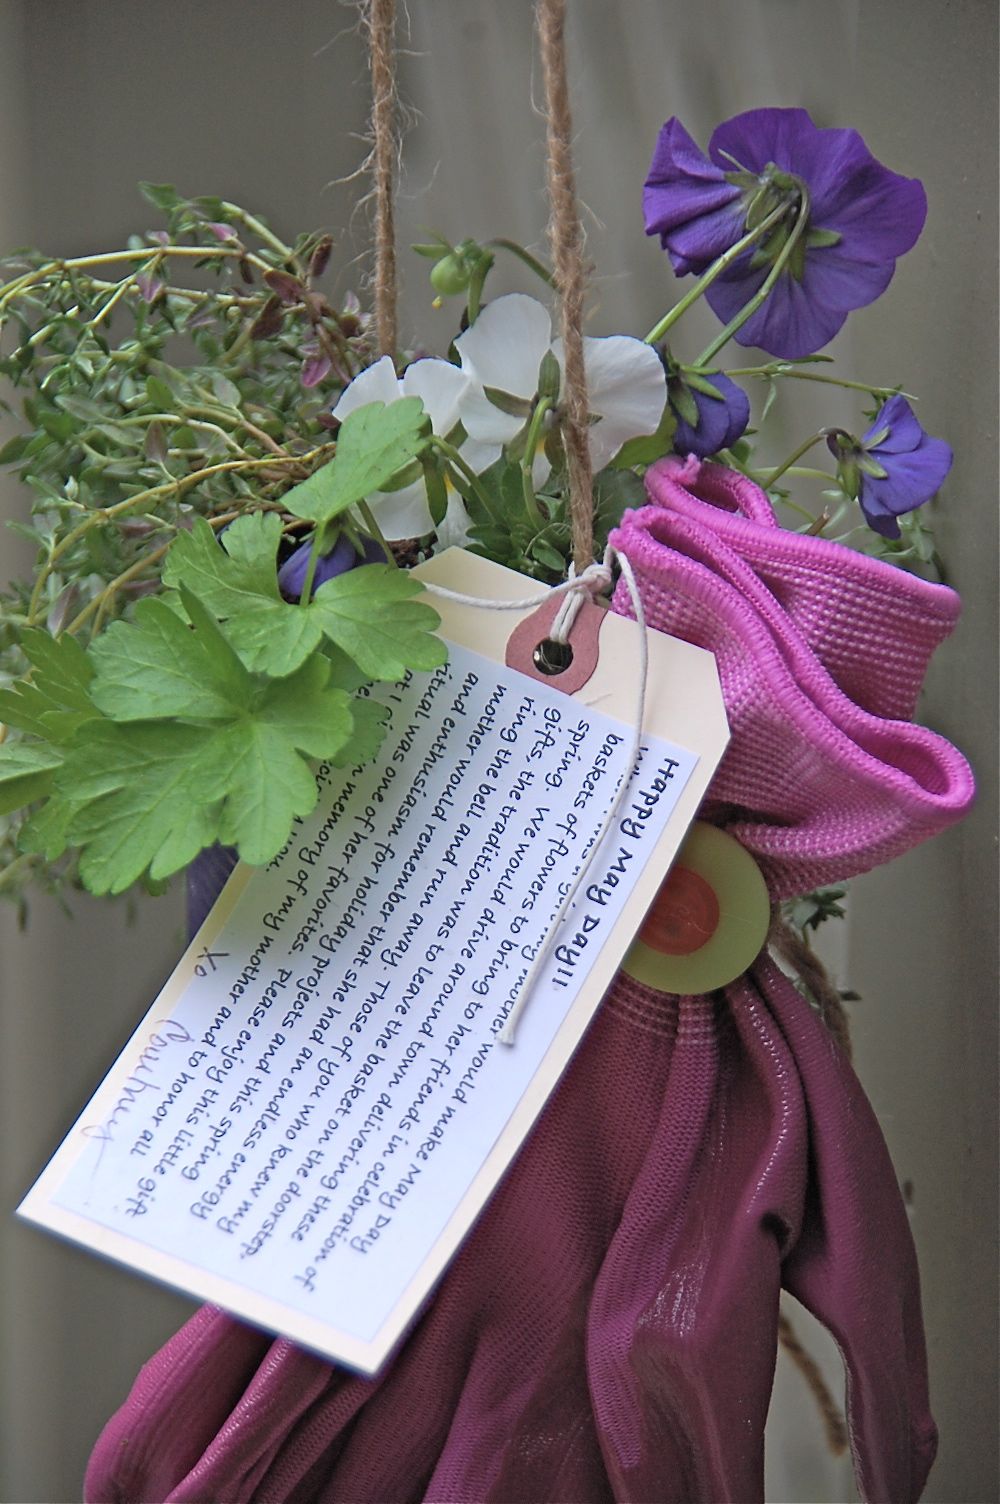 Happy May Day!!
my mother would make May Day
baskets of flowers to bring to her friends in celebration of
spring. We would drive around town delivering these
gifts, the tradition was to leave the basket on the doorstep,
ring the bell and run away. Those of you who knew my
mother would remember that she had an endless energy
and enthusiasm for holiday projects and this spring
ritual was one of her favorites. Please enjoy this little gift
in memory of my mother and to honor all
you.
Xo
Courtney